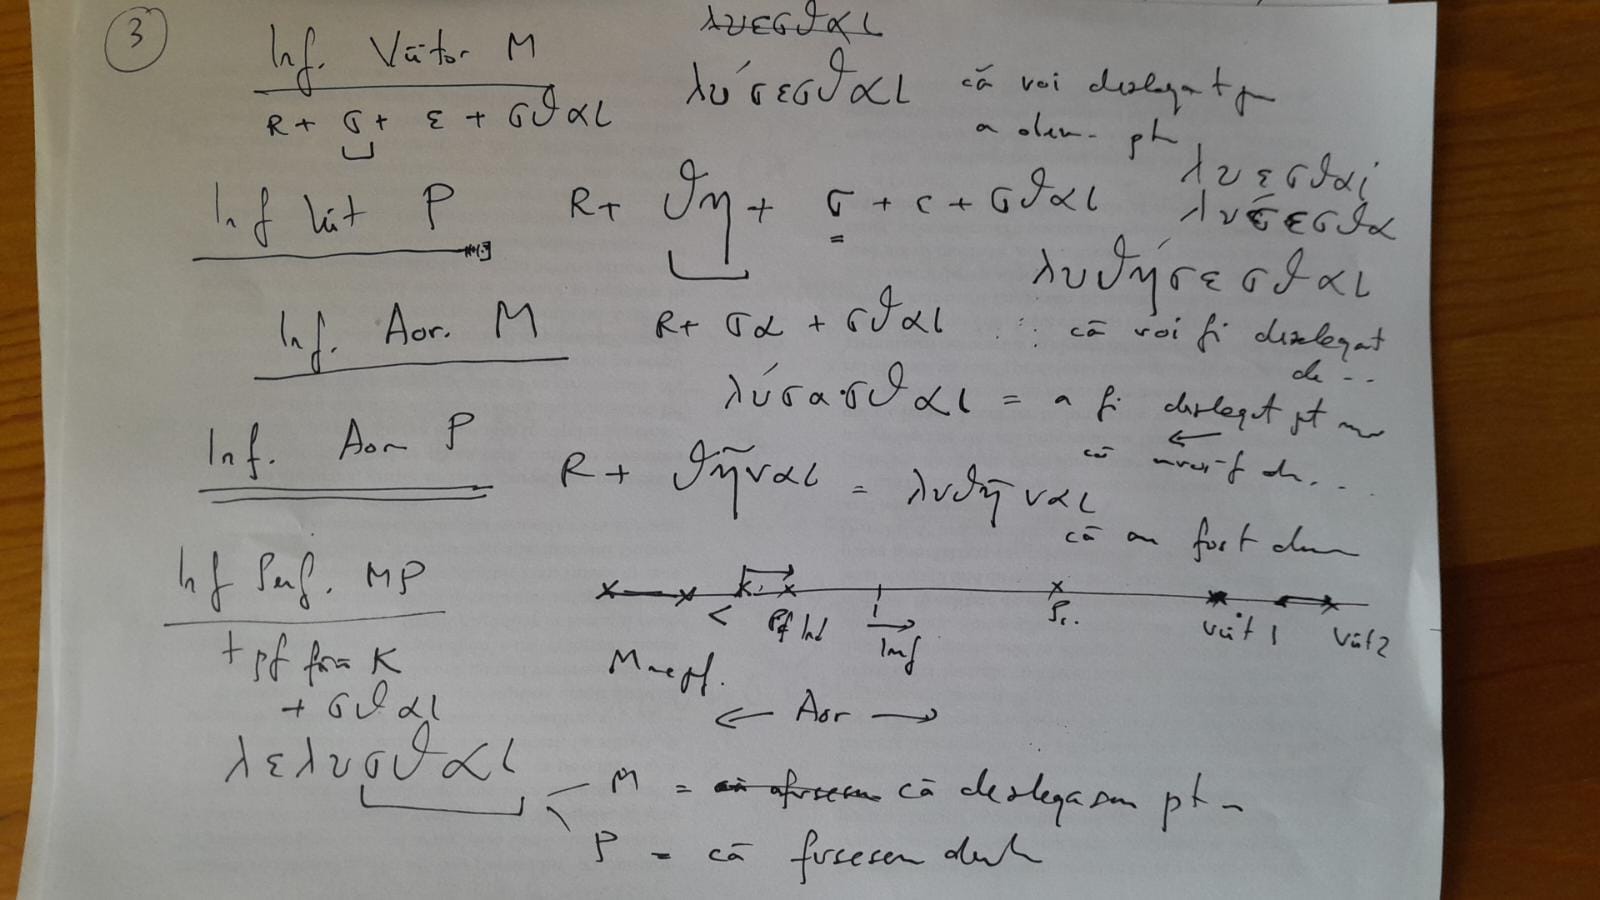 3
λυεσθαι
Inf. Viitor M
λύσεσθαι că voi dezlegat
R + σ + ε + σθαι
a pt
λυεσθαι
Inf Viit P R + θη + σ + ε + σθαι
λυσεσθα
λυθήσεσθαι
Inf. Aor. M R + σα + σθαι că voi fi dezlegat
de ...
λύσασθαι = a fi dezlegat pt
Inf. Aor P că
R + θῆναι = λυθῆναι
că am fost
Inf Perf. MP
< Pf Ind Imf Pr. Viit 1 Viit 2
+ pf fără K
M m c pf.
+ σθαι
← Aor →
λελυσθαι
M = că dezlegasem pt
P = că fusesem